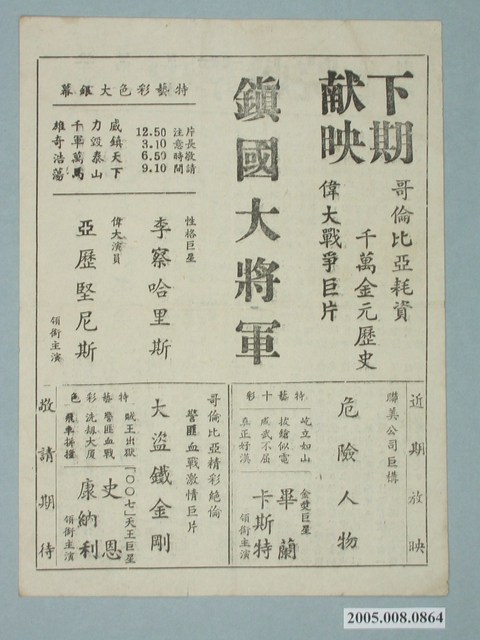 下期
献映
哥倫比亞耗資
千萬金元歷史
偉大戰爭巨片
鎮國大將軍
特藝彩色大銀幕
片長敬請
注意時間
12.50
3.10
6.50
9.10
威鎮天下
力毀泰山
千軍萬馬
雄奇浩蕩
性格巨星
李察哈里斯
偉大演員
亞歷堅尼斯
領銜主演
近期放映
聯美公司巨構
危險人物
特藝十彩
屹立如山
拔鎗似電
威武不屈
真正好漢
金獎巨星
畢蘭
卡斯特
領銜主演
哥倫比亞精彩絕倫
警匪血戰激情巨片
大盜鐵金剛
特藝彩色
賊王出獄
警匪血戰
洗刼大厦
飛車拚撞
「〇〇七」天王巨星
史恩
康納利
領銜主演
敬請期待
2005.008.0864